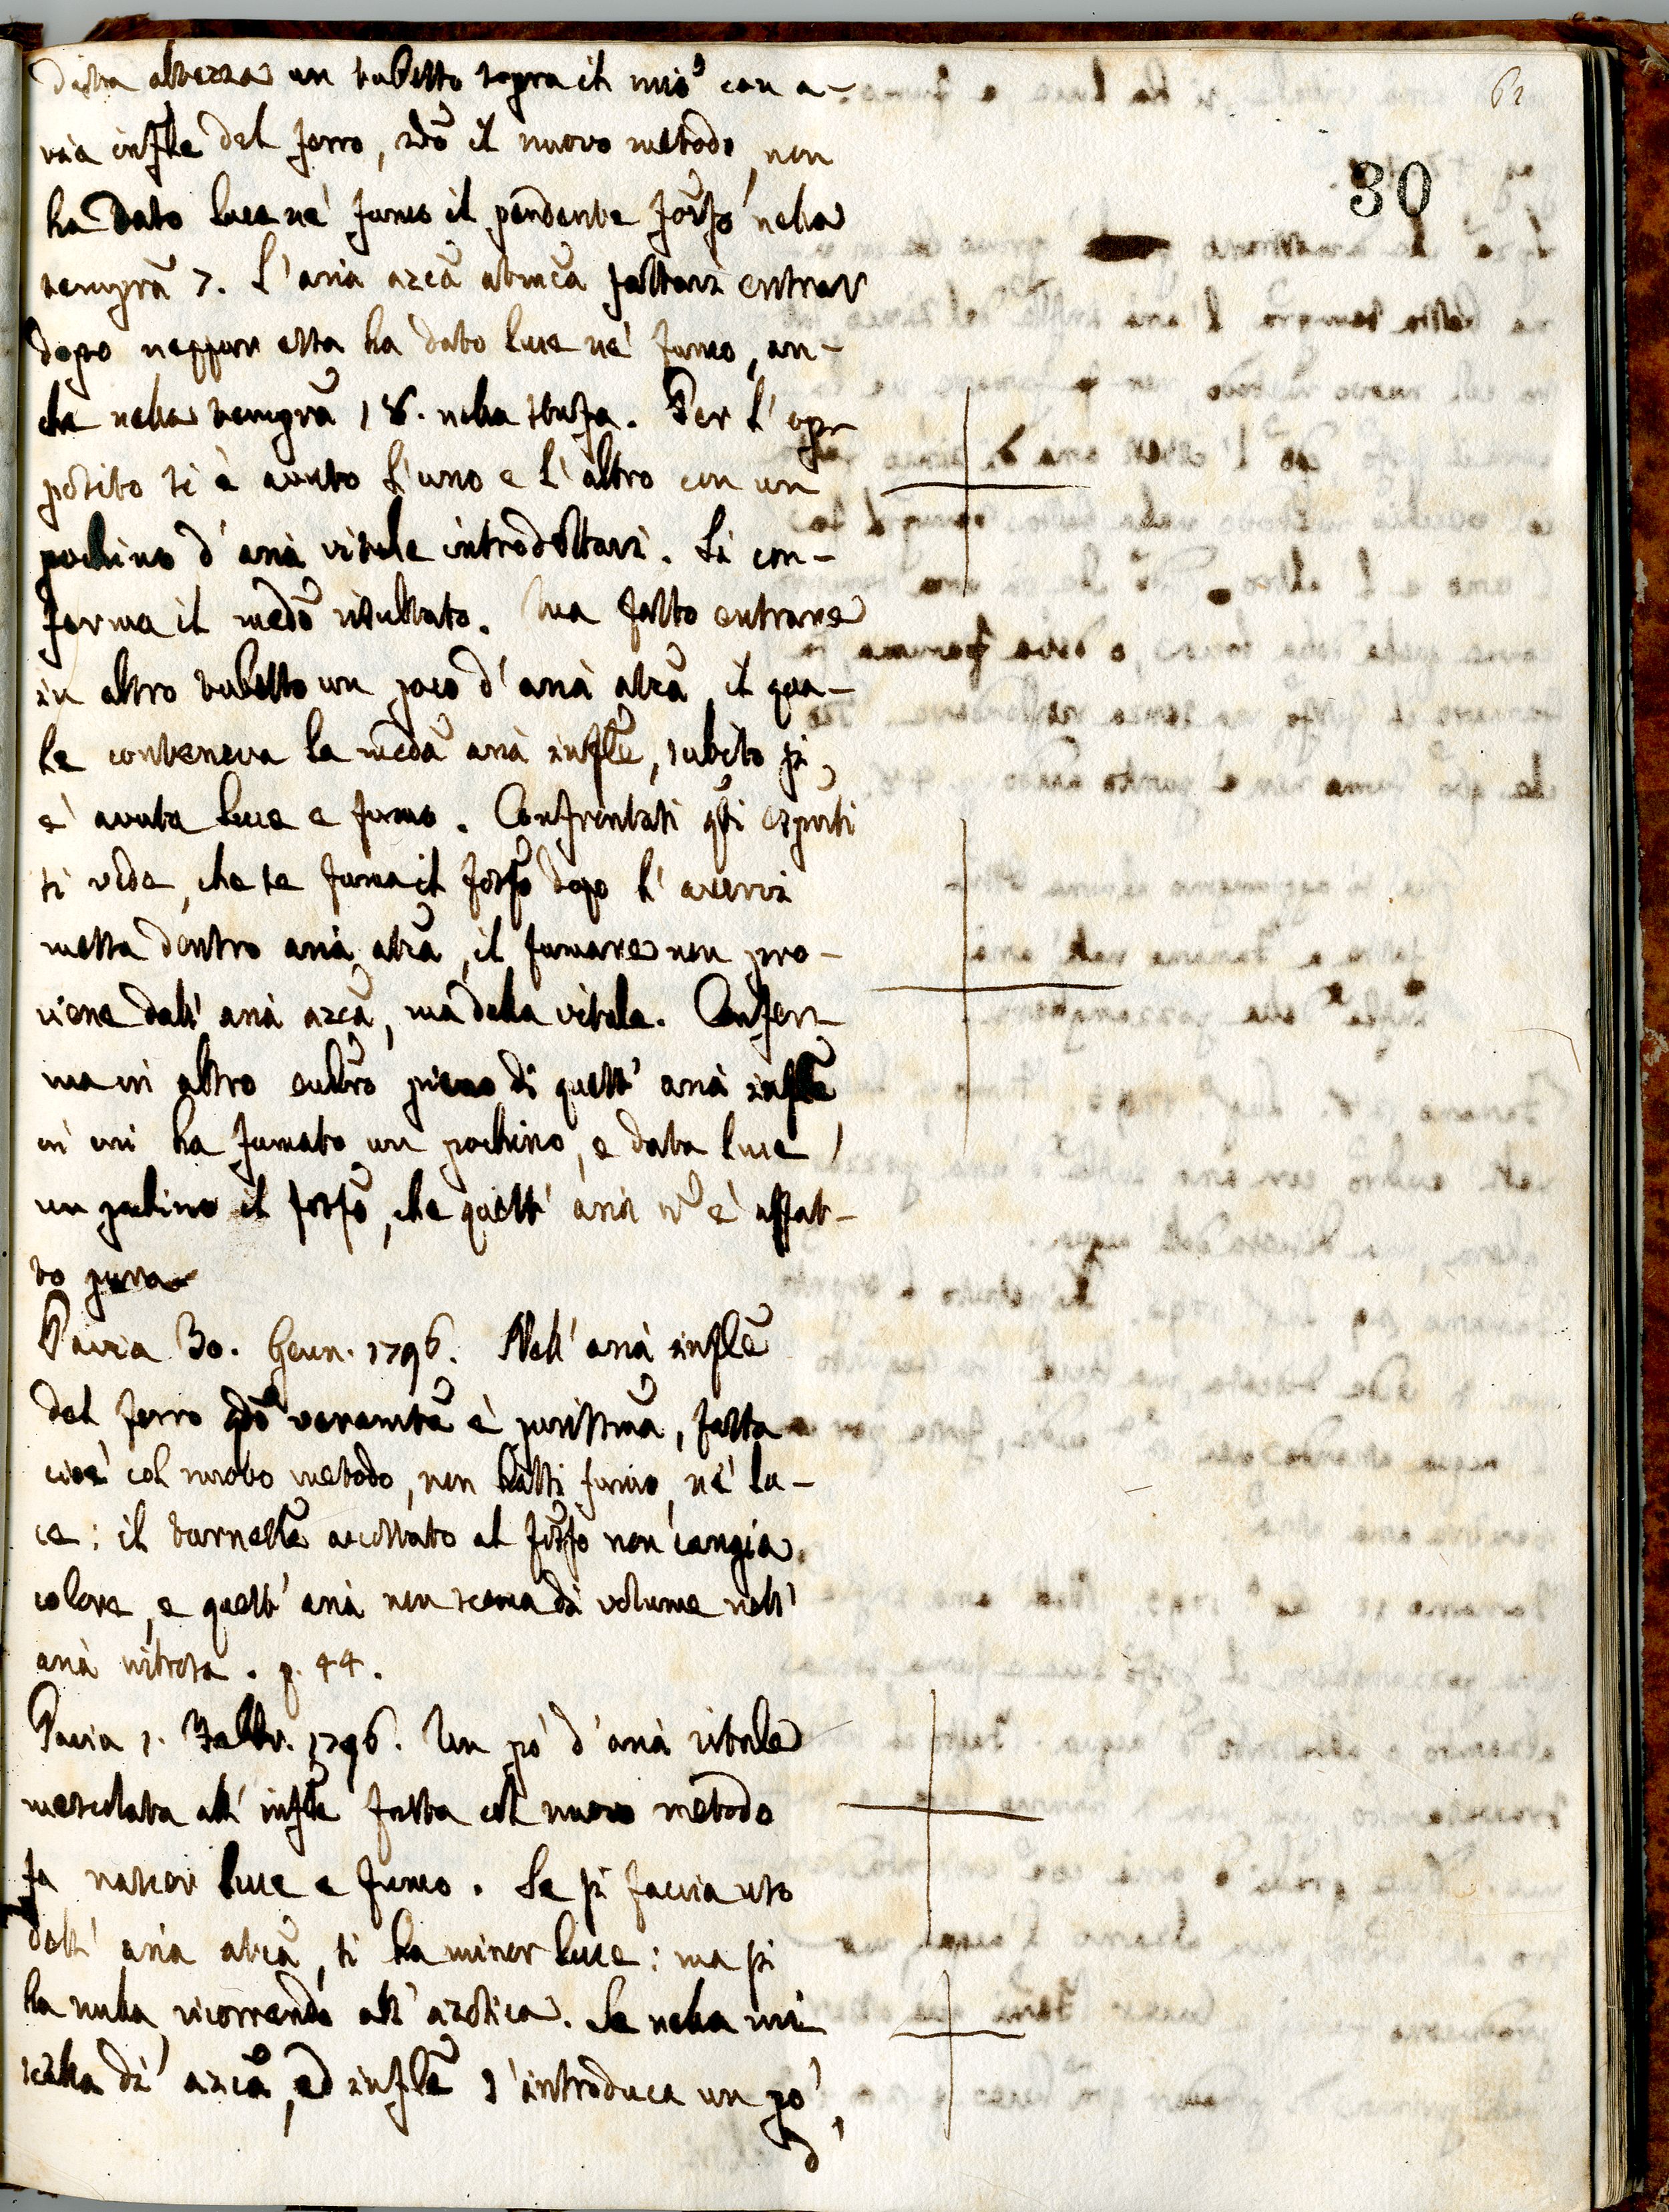 62
30
detta altezza un tubetto sopra il mio con a-
ria infle del ferro, 2do il nuovo metodo, non
ha dato luce nè fumo il pendente fosfo nella
tempra 7. L'aria azca atmca fattavi entrar
dopo neppur essa ha dato luce nè fumo, an-
che nella tempra 18. nella stufa. Per l'op-
posito si è avuto l'uno e l'altro con un
pochino d'aria vitale introdottavi. Si con-
ferma il medo risultato. Ma fatto entrare
in altro tubetto un poco d'aria atca, il qua-
le conteneva la meda aria infle, subito si
è avuta luce e fumo. Confrontati qsti esperti
si vede, che se fuma il fosfo dopo l'avervi
messa dentro aria atca, il fumare non pro-
viene dall'aria azca, ma della vitale. Confer-
ma in altro eudro pieno di quest'aria infle
in cui ha fumato un pochino, e data luce
un pochino il fosfo, che quest'aria n è affat-
to pura
Pavia 30. Genn. 1796. Nell'aria infle
del ferro qdo veramte è purissma, fatta
cioè col nuovo metodo, non hassi fumo, nè lu-
ce: il turnesle accostato al fosfo non cangia
colore, e quest'aria non scema di volume nell'
aria nitrosa. p. 44.
Pavia 1. Febbr. 1796. Un pò d'aria vitale
mescolata all'infle fatta col nuovo metodo
fa nascer luce e fumo. Se si faccia uso
dell'aria atca, si ha minor luce: ma si
ha nulla ricorrendo all'azotica. Se nella mi-
scella di azca, ed infle s'introduca un pò,
d'